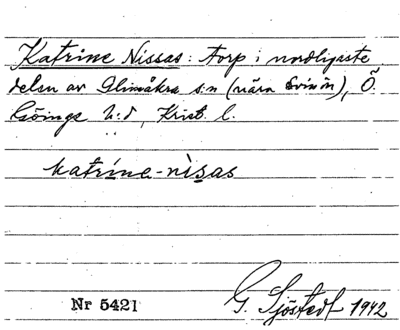 Katrine Nissas: torp i nordligaste
delen av Glimåkra s:n (nära Svinön), Ö.
Göinge h:d, Krist. l.
katríne-nìsas
Nr 5421
G. Sjöstedt 1942